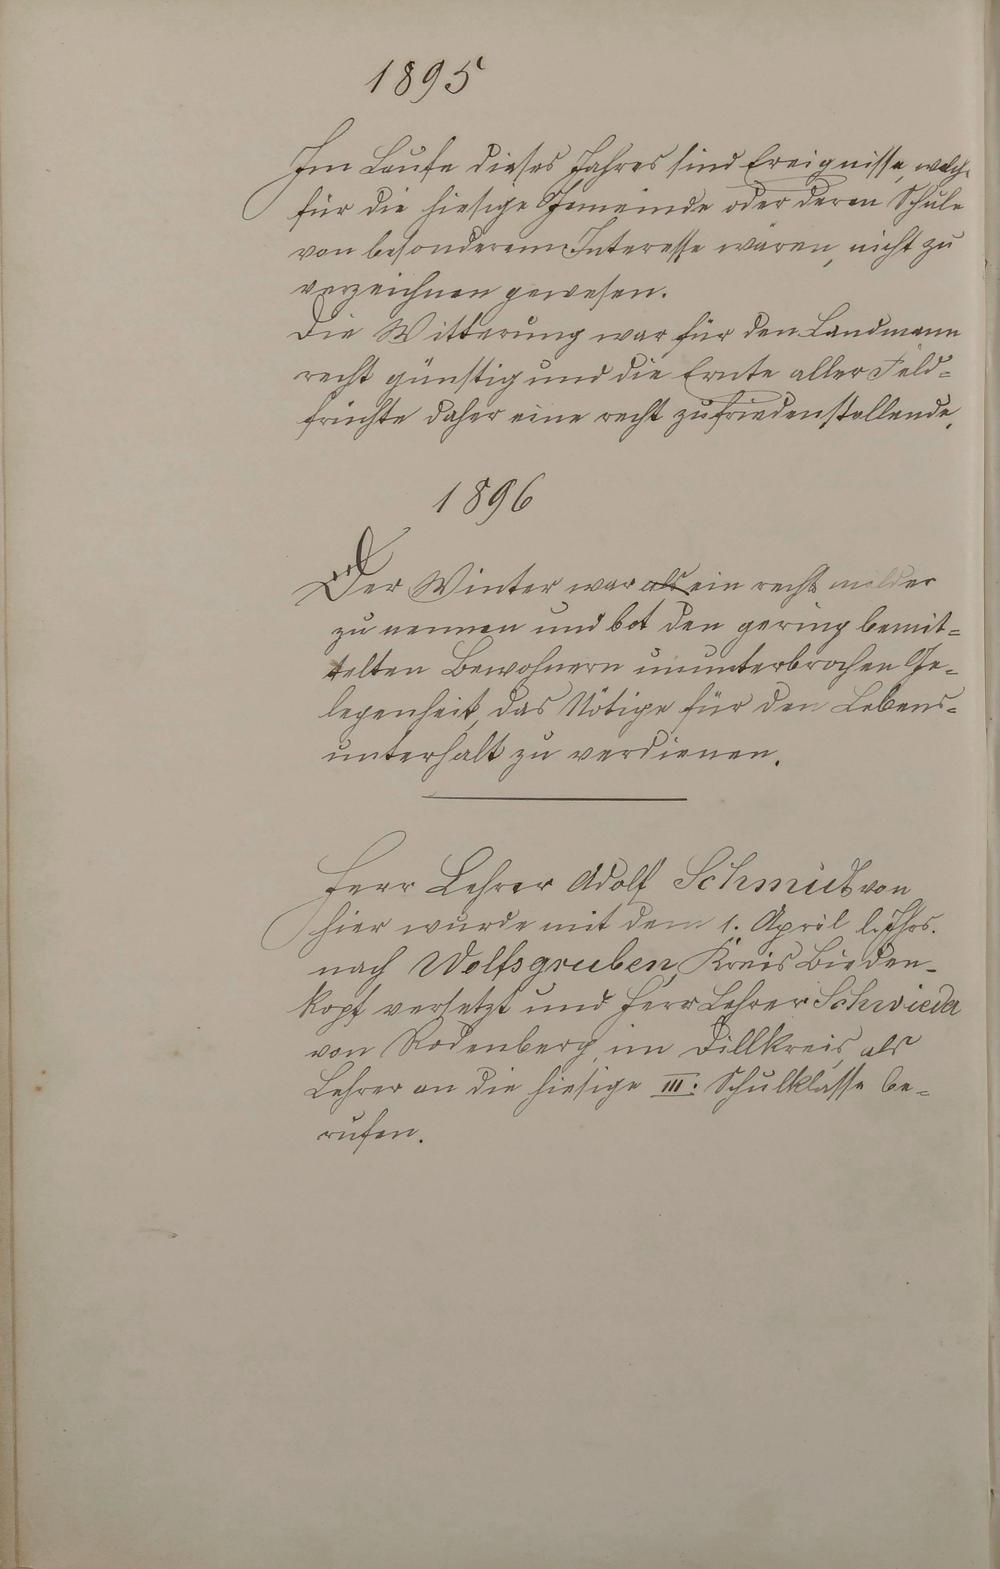 1895
Im Laufe dieses Jahres sind Ereignisse, welche
für die hiesige Gemeinde oder deren Schule
von besonderem Interesse wären, nicht zu
verzeichnen gewesen.
Die Witterung war für den Landmann
recht günstig und die Ernte aller Feld-
früchte daher eine recht zufriedenstellende.
1896
Der Winter war als ein recht milder
zu nennen und bot den gering bemit-
telten Bewohnern ununterbrochen Ge-
legenheit, das Nötige für den Lebens-
unterhalt zu verdienen.
Herr Lehrer Adolf Schmidt von
hier wurde mit dem 1. April l. Jhrs.
nach Wolfsgruben, Kreis Bieden-
kopf versetzt und Herr Lehrer Schwieder
von Rodenberg, im Dillkreis, als
Lehrer an die hiesige III. Schulklasse be-
rufen.